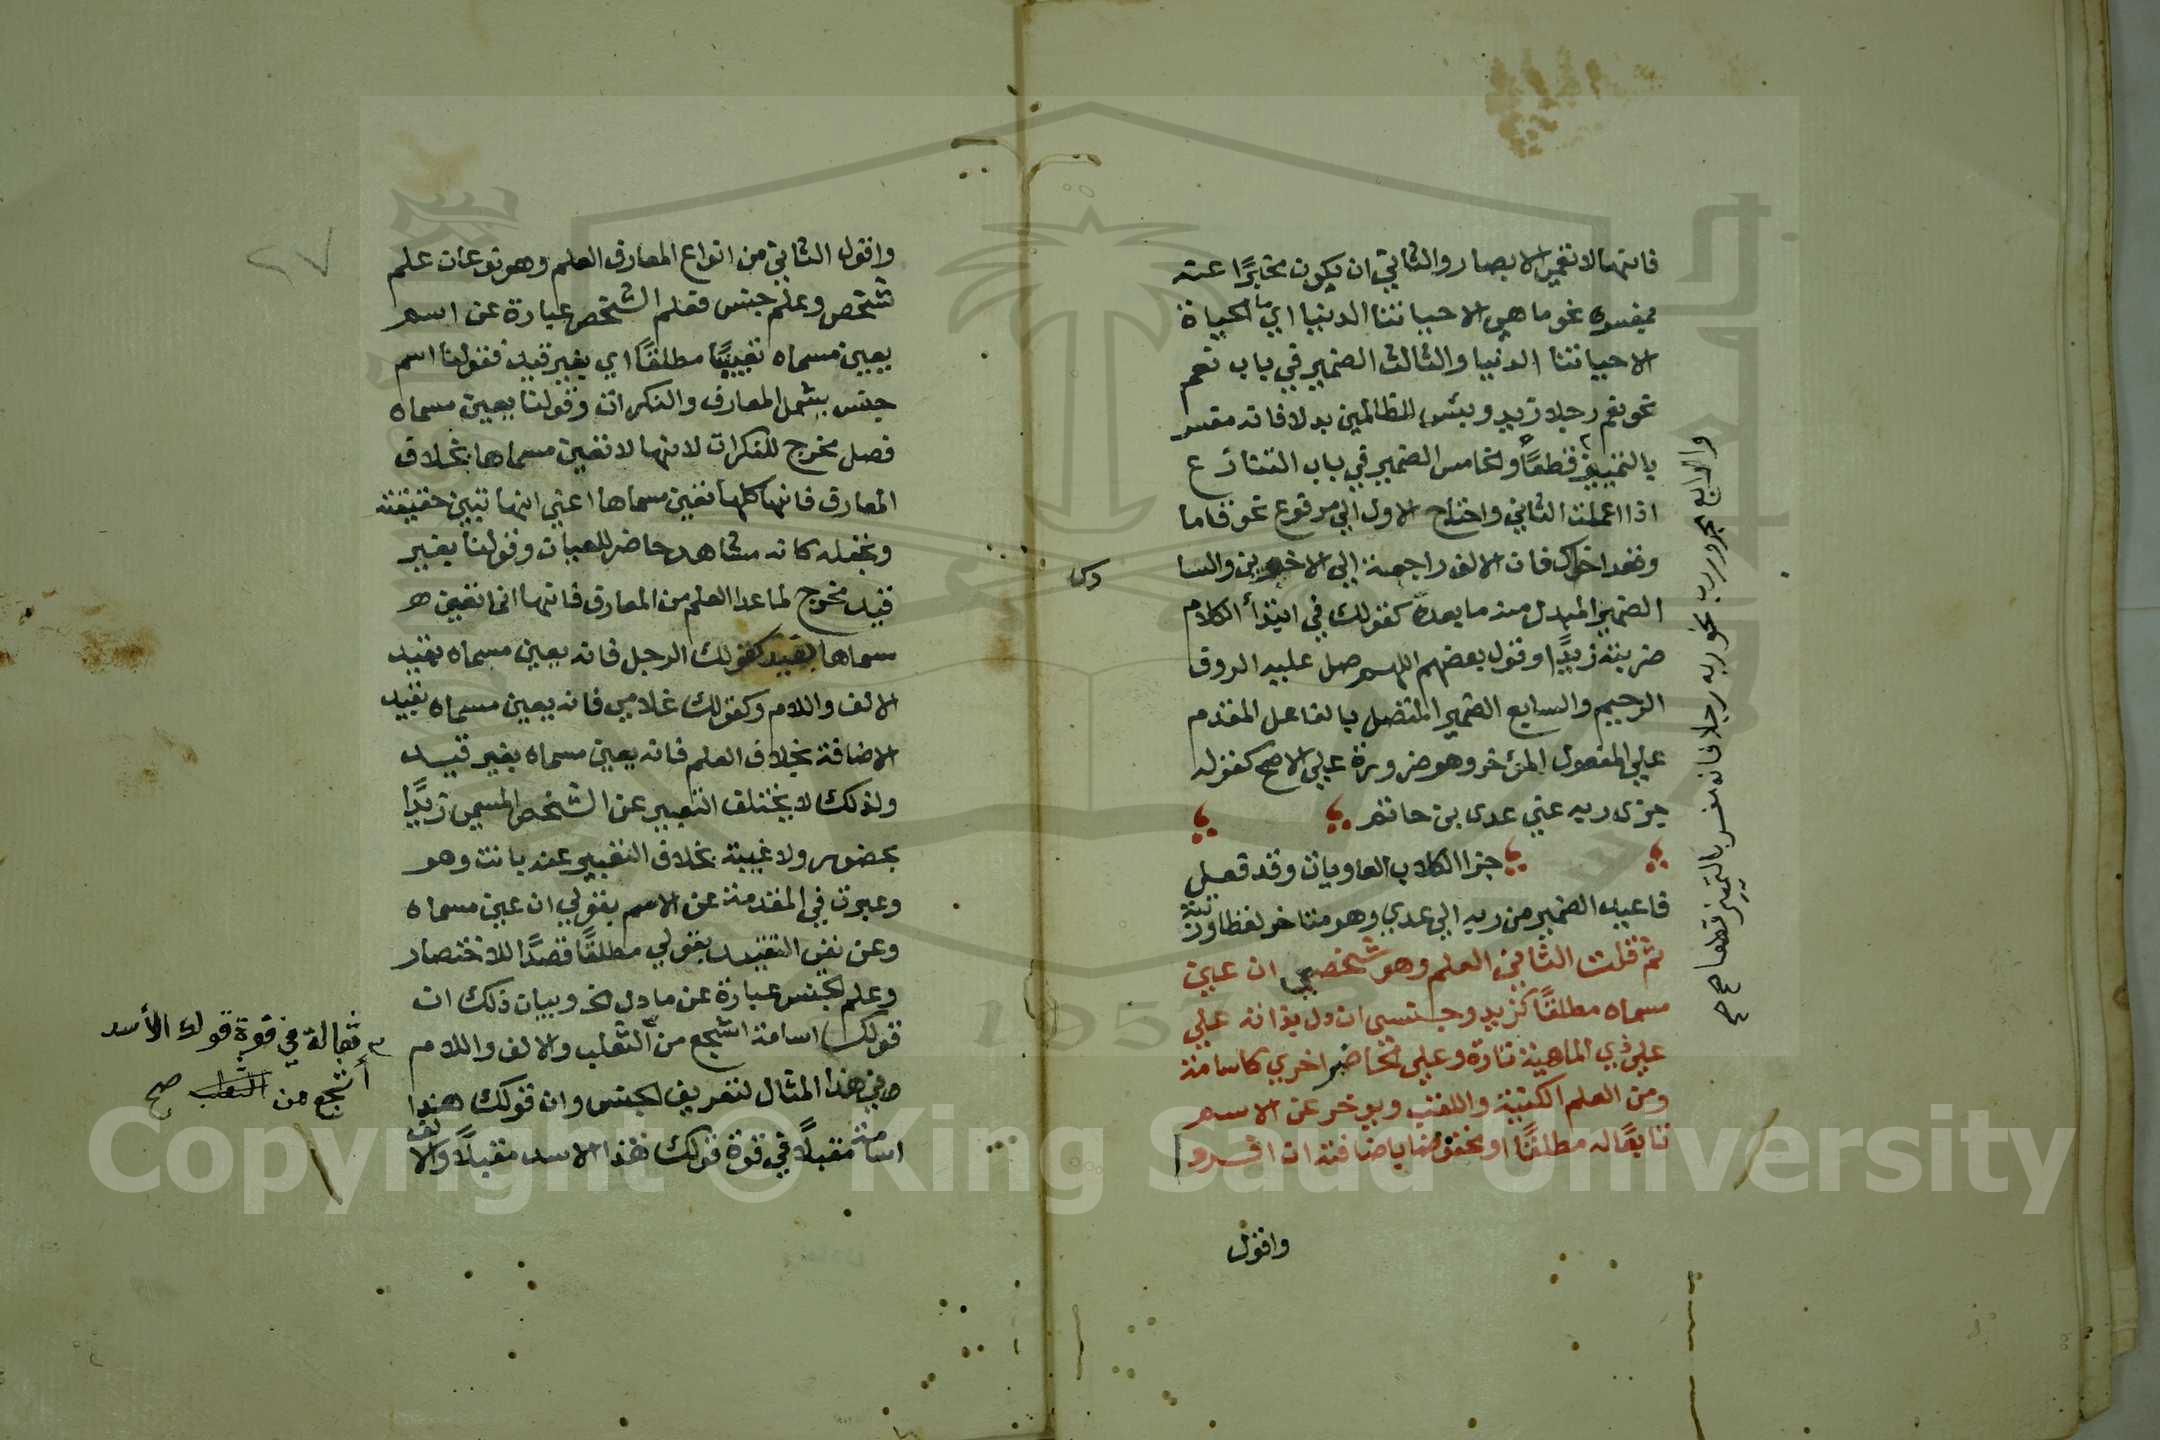 فانها لا تعمي الابصار والثاني ان يكون مخبرًا عنه
بمفسره نحو ما هي الا حياتنا الدنيا اي ما الحياة
الا حياتنا الدنيا والثالث الضمير في باب نعم
نحو نعم رجلا زيد وبئس للظالمين بدلا فانه مفسر
بالتمييز قطعًا والخامس الضمير في باب التنازع
اذا اعملت الثاني واحتاج الاول الي مرفوع نحو قاما
وقعد اخواك فان الالف راجعة الي الاخوين والسا
دس
الضمير المبدل منه ما بعده كقولك في ابتدأ الكلام
ضربته زيدًا وقول بعضهم اللهم صل عليه الروف
الرحيم والسابع الضمير المتصل بالفاعل المقدم
علي المفعول المؤخر وهو ضرورة علي الاصح كقوله
جزى ربه عني عدي بن حاتم
جزا الكلاب العاويات وقد فعل
فاعيد الضمير من ربه الي عدي وهو متاخر لفظا ورتبة
ثم قلت الثاني العلم وهو شخصي ان عين
مسماه مطلقًا كزيد وجنسي ان دل بذاته علي
علي ذي الماهية تارة وعلي الحاضر اخري كاسامة
ومن العلم الكنية واللقب ويوخر عن الاسم
تابعًا له مطلقًا او مخفوضا باضافته ان افردا
واقول
والرابع مجرور رب نحو ربه رجلا فانه مفسر بالتمييز قطعا صح
٢٧
واقول الثاني من انواع المعارف العلم وهو نوعان علم
شخص وعلم جنس فعلم الشخص عبارة عن اسم
يعين مسماه تعيينًا مطلقًا اي بغير قيد فقولنا اسم
جنس يشمل المعارف والنكرات وقولنا يعين مسماه
فصل مخرج للنكرات لانها لا تعين مسماها بخلاف
المعارف فانها كلها تعين مسماها اعني انها تبين حقيقته
وتجعله كانه مشاهد حاضر للعيان وقولنا بغير
قيد مخرج لما عدا العلم من المعارف فانها انما تعين م
سماها بقيد كقولك الرجل فانه يعين مسماه بقيد
الالف واللام وكقولك غلامي فانه يعين مسماه بقيد
الاضافة بخلاف العلم فانه يعين مسماه بغير قيد
ولذلك لا يختلف التعبير عن الشخص المسمي زيدًا
بحضور ولا غيبة بخلاف التعبير عنه بانت وهو
وعبرت في المقدمة عن الاسم بقولي ان عين مسماه
وعن نفي التقييد بقولي مطلقًا قصدًا للاختصار
وعلم الجنس عبارة عن ما دل الخ وبيان ذلك ان
قولك اسامة اشجع من الثعلب والالف واللام
في هذا المثال لتعريف الجنس وان قولك هذا
اسامة مقبلًا في قوة قولك هذا الاسد مقبلًا والالف
ثعالة في قوة قولك الأسد
أشجع من الثعلب صح
Copyright © King Saud University
1957